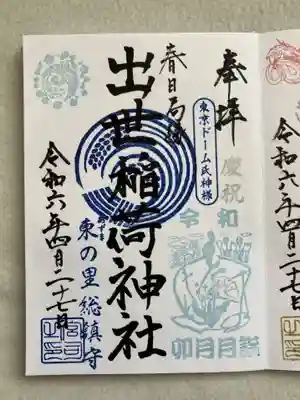 奉拝
東京ドーム氏神様
慶祝
令和
卯月月詣
春日局
出世稲荷神社
あずま
東の里総鎮守
令和六年四月二十七日
令和六年四月二十